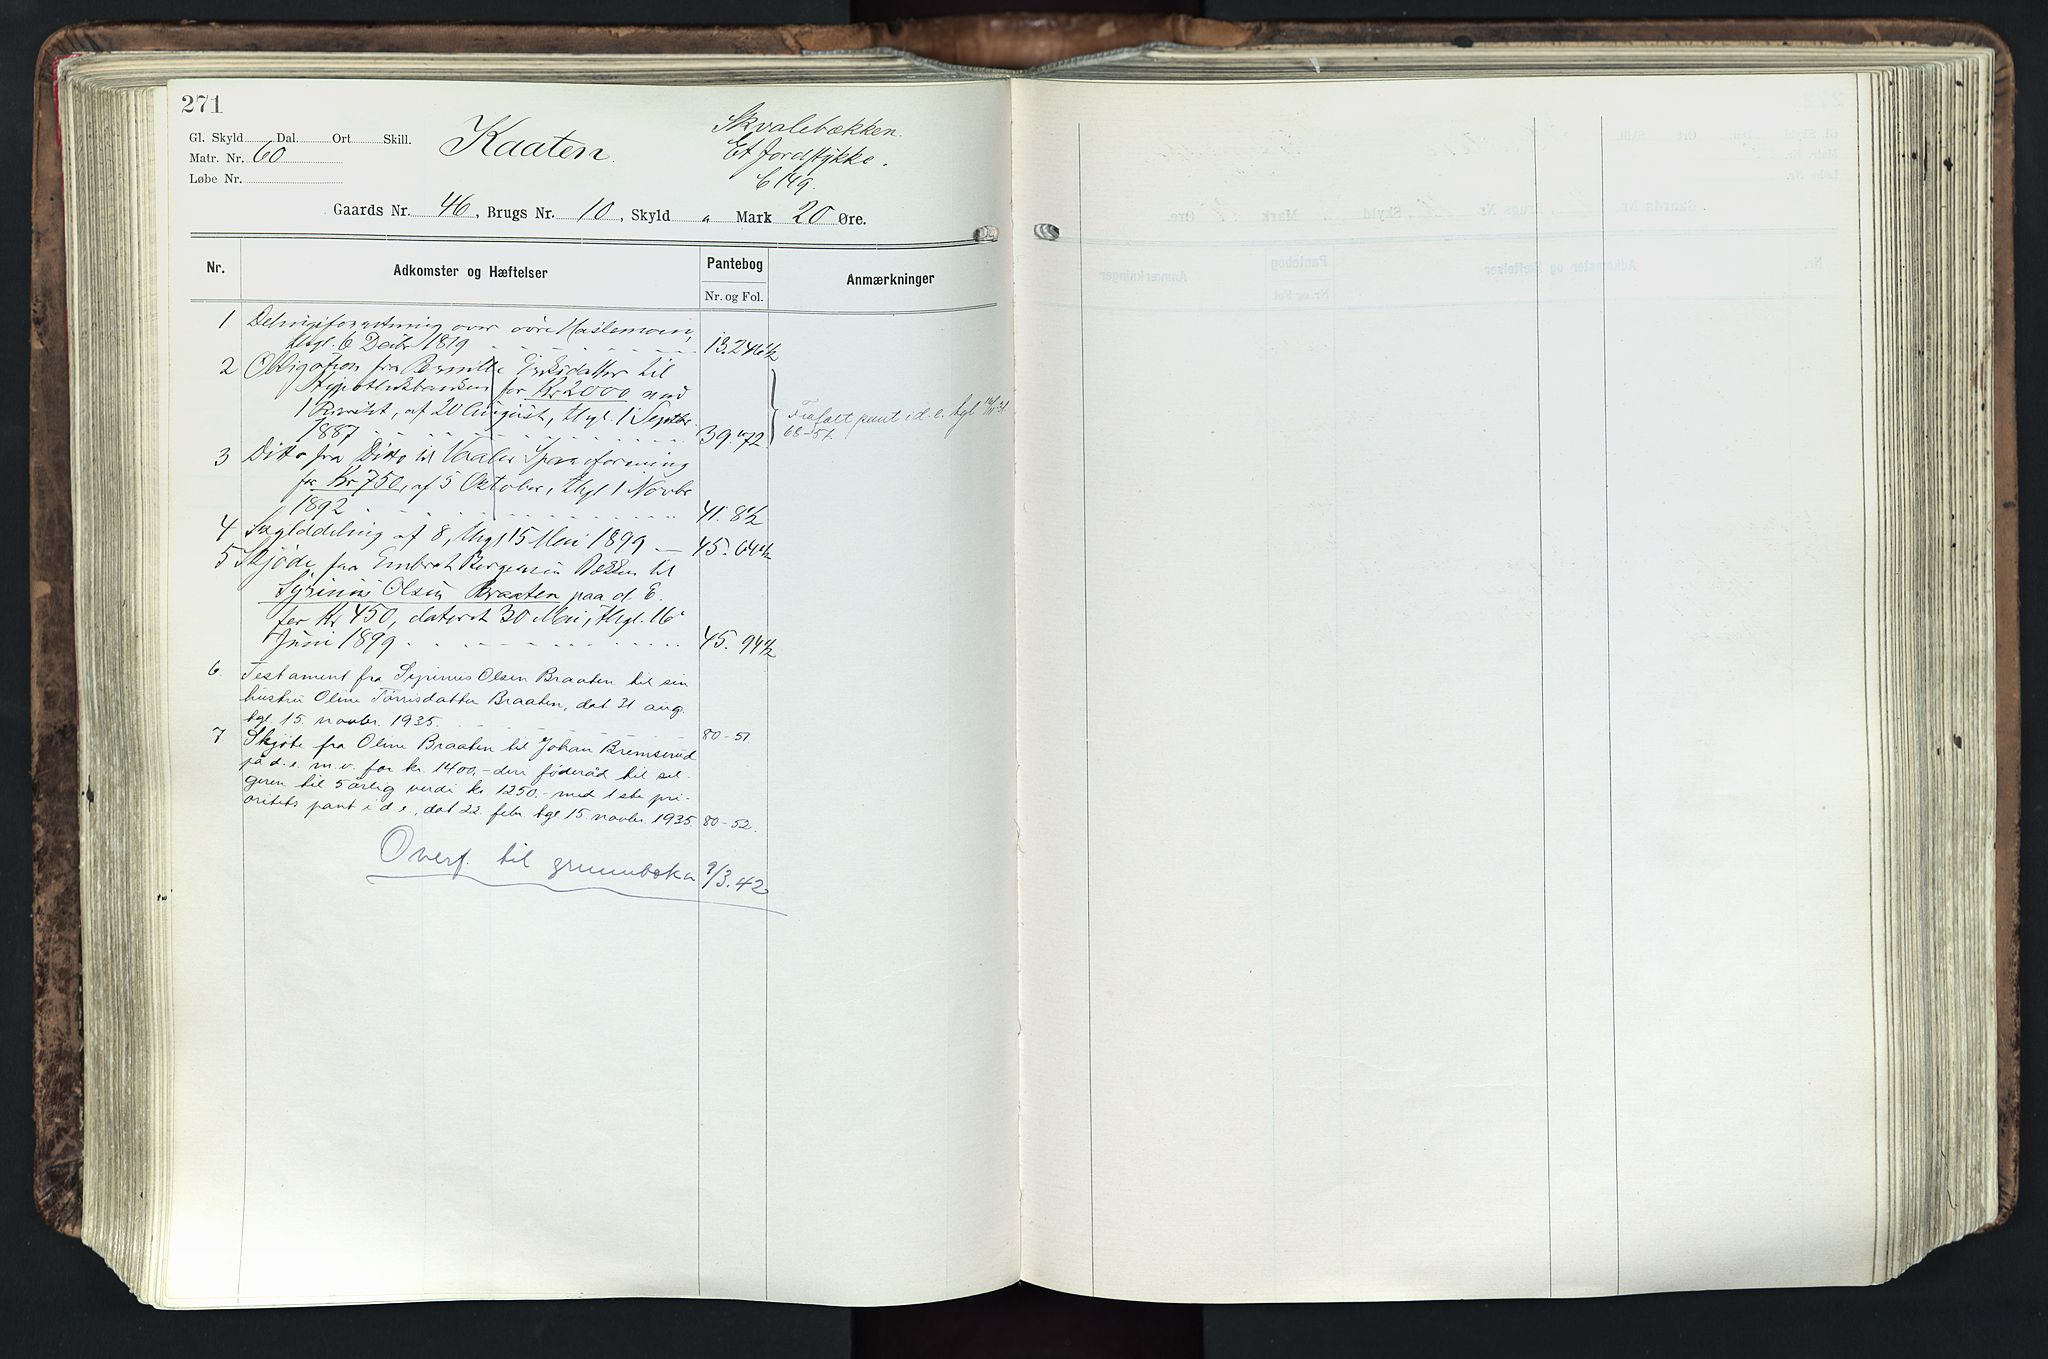 271
Gl. Skyld Dal. Ort Skill.
Matr. Nr. 60
Løbe Nr.
Kaaten.
Skvalebækken.
Et Jordstykke.
Gaards Nr. 46, Brugs Nr. 10, Skyld „ Mark 20 Øre.
Nr. Adkomster og Hæftelser Pantebog Anmærkninger
Nr. og Fol.
1 Delingsforretning over øvre Haslemoen,
thgl. 6 Decbr 1819 13.246½
2 Obligation fra Pernille Eriksdatter til
Hypothekbanken for Kr 2000 mod
1 Prioritet, af 20 August, thgl. 1 Septbr.
1887 39.72
Frafalt pant i d. e. tgl
68-57.
3 Ditto fra Ditto til Vaaler Spareforening
for Kr 750, af 5 Oktober, thgl 1 Novbr
1892 41. 8½
4 Skylddeling af 8, thgl 15 Mai 1899 45. 64½
5 Skjøde fra Embret Børgesen Bækken til
Syrinus Olsen Braaten paa d. E.
for Kr 450, dateret 30 Mai, thgl. 16
Juni 1899 45. 94½
6. Testament fra Syrinus Olsen Braaten til sin
hustru Oline Tørrisdatter Braaten, dat 31 aug.
tgl 15. novbr. 1935. 80-51.
7 Skjøte fra Oline Braaten til Johan Bremserud
på d. e. m.v. for kr. 1400,- den føderåd til sel-
geren til 5 årlig verdi kr. 1250.- med 1ste pri-
oritets pant i d e., dat 22. febr tgl 15. novbr. 1935 80-52.
Overf. til grunnboka 9/3.42